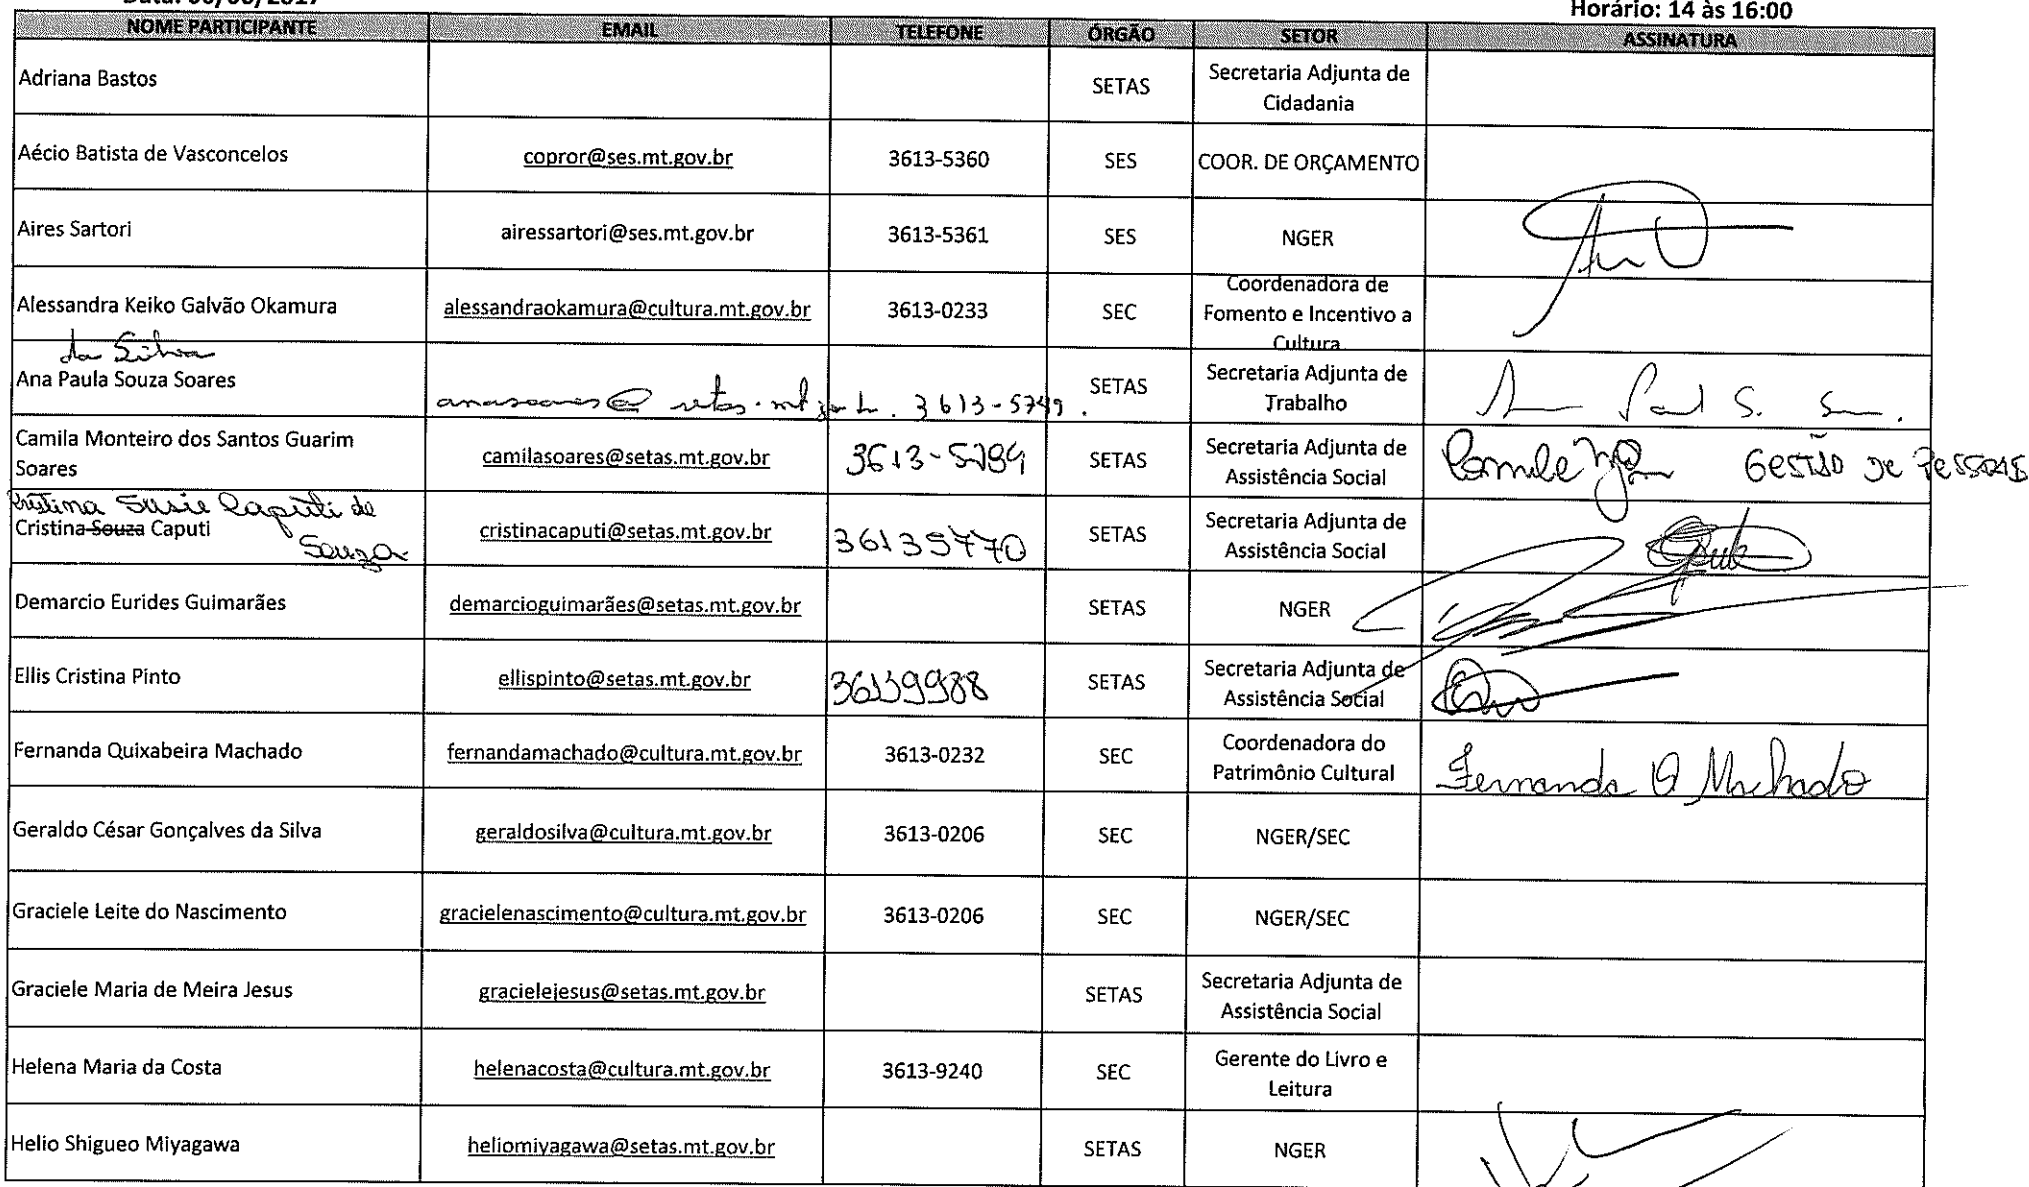 Horário: 14 às 16:00
NOME PARTICIPANTE EMAIL TELEFONE ÓRGÃO SETOR ASSINATURA
Adriana Bastos SETAS Secretaria Adjunta de Cidadania
Aécio Batista de Vasconcelos copror@ses.mt.gov.br 3613-5360 SES COOR. DE ORÇAMENTO
Aires Sartori airessartori@ses.mt.gov.br 3613-5361 SES NGER
Alessandra Keiko Galvão Okamura alessandraokamura@cultura.mt.gov.br 3613-0233 SEC Coordenadora de Fomento e Incentivo a Cultura
da Silva
Ana Paula Souza Soares SETAS Secretaria Adjunta de Trabalho
Camila Monteiro dos Santos Guarim Soares camilasoares@setas.mt.gov.br SETAS Secretaria Adjunta de Assistência Social GESTÃO DE PESSOAS
Cristina Susie Caputi de Souza
Cristina Souza Caputi cristinacaputi@setas.mt.gov.br 36135770 SETAS Secretaria Adjunta de Assistência Social
Demarcio Eurides Guimarães demarcioguimarães@setas.mt.gov.br SETAS NGER
Ellis Cristina Pinto ellispinto@setas.mt.gov.br 36139988 SETAS Secretaria Adjunta de Assistência Social
Fernanda Quixabeira Machado fernandamachado@cultura.mt.gov.br 3613-0232 SEC Coordenadora do Patrimônio Cultural Fernanda Q Machado
Geraldo César Gonçalves da Silva geraldosilva@cultura.mt.gov.br 3613-0206 SEC NGER/SEC
Graciele Leite do Nascimento gracielenascimento@cultura.mt.gov.br 3613-0206 SEC NGER/SEC
Graciele Maria de Meira Jesus gracielejesus@setas.mt.gov.br SETAS Secretaria Adjunta de Assistência Social
Helena Maria da Costa helenacosta@cultura.mt.gov.br 3613-9240 SEC Gerente do Livro e Leitura
Helio Shigueo Miyagawa heliomiyagawa@setas.mt.gov.br SETAS NGER